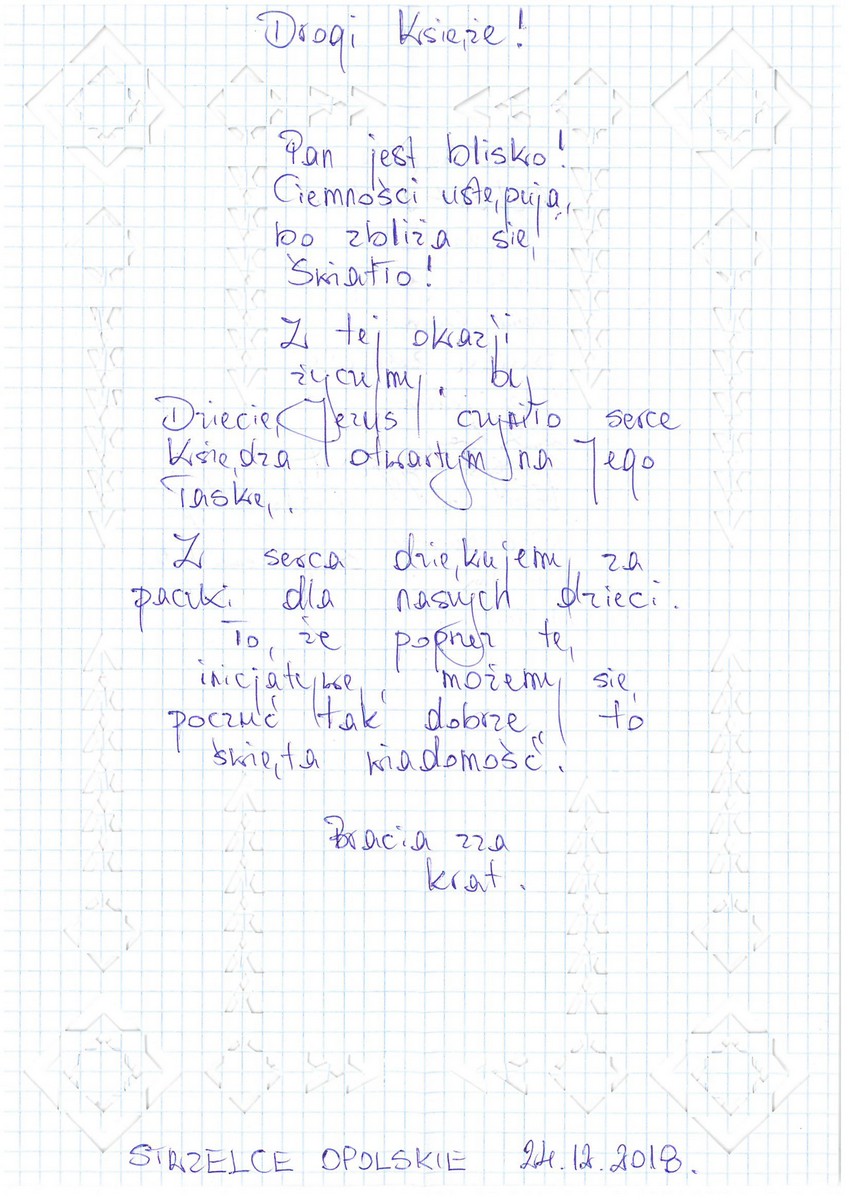 Drogi Księże!
Pan jest blisko!
Ciemności ustępują,
bo zbliża się
Światło!
Z tej okazji
życzymy, by
Dziecię Jezus czyniło serce
Księdza otwartym na Jego
łaskę.
Z serca dziękujemy za
paczki dla naszych dzieci.
To, że poprzez tę
inicjatywę, możemy się
poczuć tak dobrze, to
święta wiadomość.
Bracia zza
krat.
STRZELCE OPOLSKIE 24.12.2018.